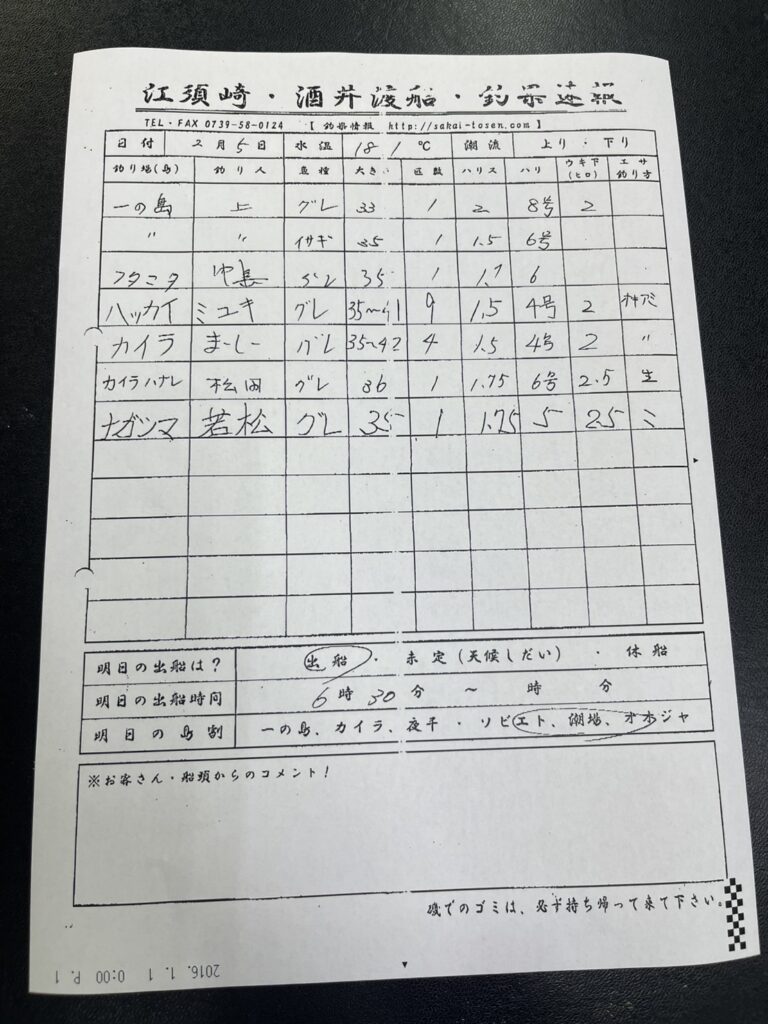 江須崎・酒井渡船・釣果速報
TEL・FAX 0739-58-0124 【 釣果情報 http://sakai-tosen.com 】
日付 2月5日 水温 18.1 ℃ 潮流 上り・下り
釣り場(島) 釣り人 魚種 大きさ 匹数 ハリス ハリ ウキ下(ヒロ) エサ釣り方
一の島 上 グレ 33 1 2 8号 2
〃 〃 イサギ 35 1 1.5 6号
フタミタ 中島 グレ 35 1 1.7 6
ハッカイ ミユキ グレ 35〜41 9 1.5 4号 2 オキアミ
カイラ まーしー グレ 35〜42 4 1.5 4号 2 〃
カイラハナレ 松田 グレ 36 1 1.75 6号 2.5 生
ナガシマ 若松 グレ 35 1 1.75 5 2.5 ミ
明日の出船は? 出船・未定(天候しだい)・休船
明日の出船時間 6時30分 〜 時 分
明日の島割 一の島、カイラ、夜平・ソビエト、潮場、オオジャ
※お客さん・船頭からのコメント!
磯でのゴミは、必ず持ち帰って来て下さい。
2016. 1. 1 0:00 P. 1